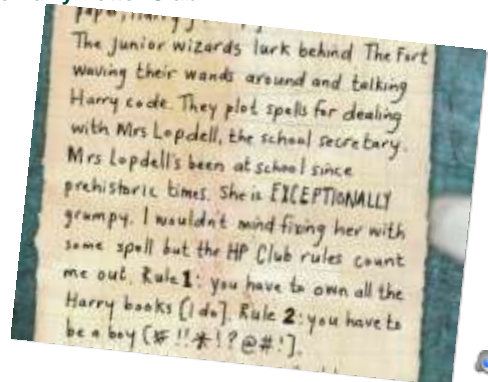 The Junior wizards lurk behind The Fort
waving their wands around and talking
Harry code. They plot spells for dealing
with Mrs Lopdell, the school secretary.
Mrs Lopdell's been at school since
prehistoric times. She is EXCEPTIONALLY
grumpy. I wouldn't mind fixing her with
some spell but the HP Club rules count
me out. Rule 1: you have to own all the
Harry books [I do]. Rule 2: you have to
be a boy [#!!*!?@#!].